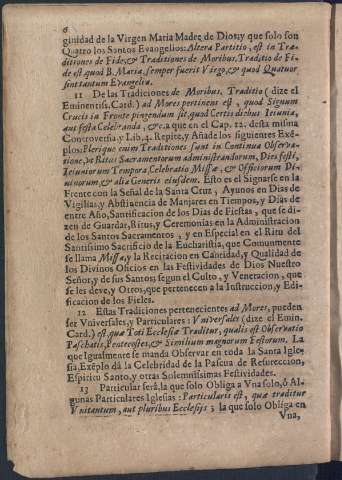 6
ginidad de la Virgen Maria Madre de Dios; y que solo son
Quatro los Santos Evagelios: Altera Partitio, est in Tra-
ditiones de Fide, & Traditiones de Moribus. Traditio de Fi-
de est quod B. Maria, semper fuerit Virgo, & quod Quatuor
sint tantum Evangelia.
11 De las Traditiones de Moribus. Traditio (dize el
Eminentiss. Card.) ad Mores pertinens est, quod Signum
Crucis in Fronte pingendum sit, quod Certis diebus Ieiunia,
aut festa Celebranda, &c. a que en el Cap. 12. desta misma
Controversia, y Lib. 4. Repite, y Añade los siguientes Exē-
plos: Plerique enim Traditiones sunt in Continua Observa-
tione, vt Ritus Sacramentorum administrandorum, Dies festi,
Ieiuniorum Tempora, Celebratio Missæ, & Officiorum Di-
uinorum, & alia Generis eiusdem. Esto es el Signarse en la
Frente con la Señal de la Santa Cruz, Ayunos en Dias de
Vigilias, y Abstinencia de Manjares en Tiempos, y Dias de
entre Año, Santificacion de los Dias de Fiestas, que se di-
zen de Guardar, Ritus, y Ceremonias en la Administracion
de los Santos Sacramentos, y en Especial en el Ritu del
Santissimo Sacrificio de la Eucharistia, que Comunmente
se llama Missa, y la Recitacion en Cantidad, y Qualidad de
los Divinos Oficios en las Festividades de Dios Nuestro
Señor, y de sus Santos, segun el Culto, y Veneracion, que
se les deve, y Otros, que pertenecen a la Instruccion, y Edi-
ficacion de los Fieles.
12 Estas Traditiones pertenecientes ad Mores, pueden
ser Vniversales, y Particulares: Vniversales (dize el Emin.
Card.) est, quæ Toti Ecclesiæ Traditur, qualis est Observatio
Paschatis, Pentecostes, & Similium magnorum Festorum. La
que Igualmente se manda Observar en toda la Santa Igle-
sia, Exēplo dà la Celebridad de la Pascua de Resureccion,
Espiritu Santo, y otras Solemnissimas Festividades.
13 Particular serà, la que solo Obliga a Vna solo, ò Al-
gunas Particulares Iglesias: Particularis est, quæ traditur
Vni tantum, aut pluribus Ecclesijs; la que solo Obliga en
Vna,